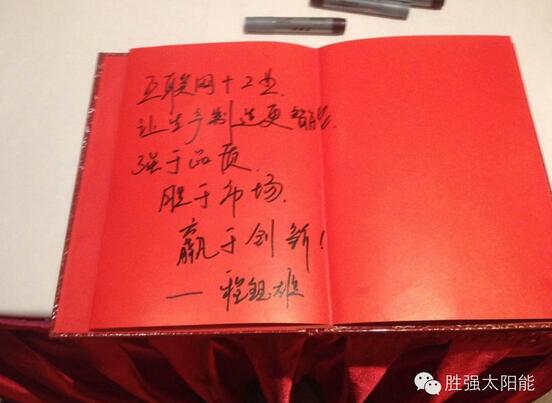 互联网+工业.
让生产制造更智能.
强于品质.
胜于市场.
赢于创新!
——程钮雄
胜强太阳能